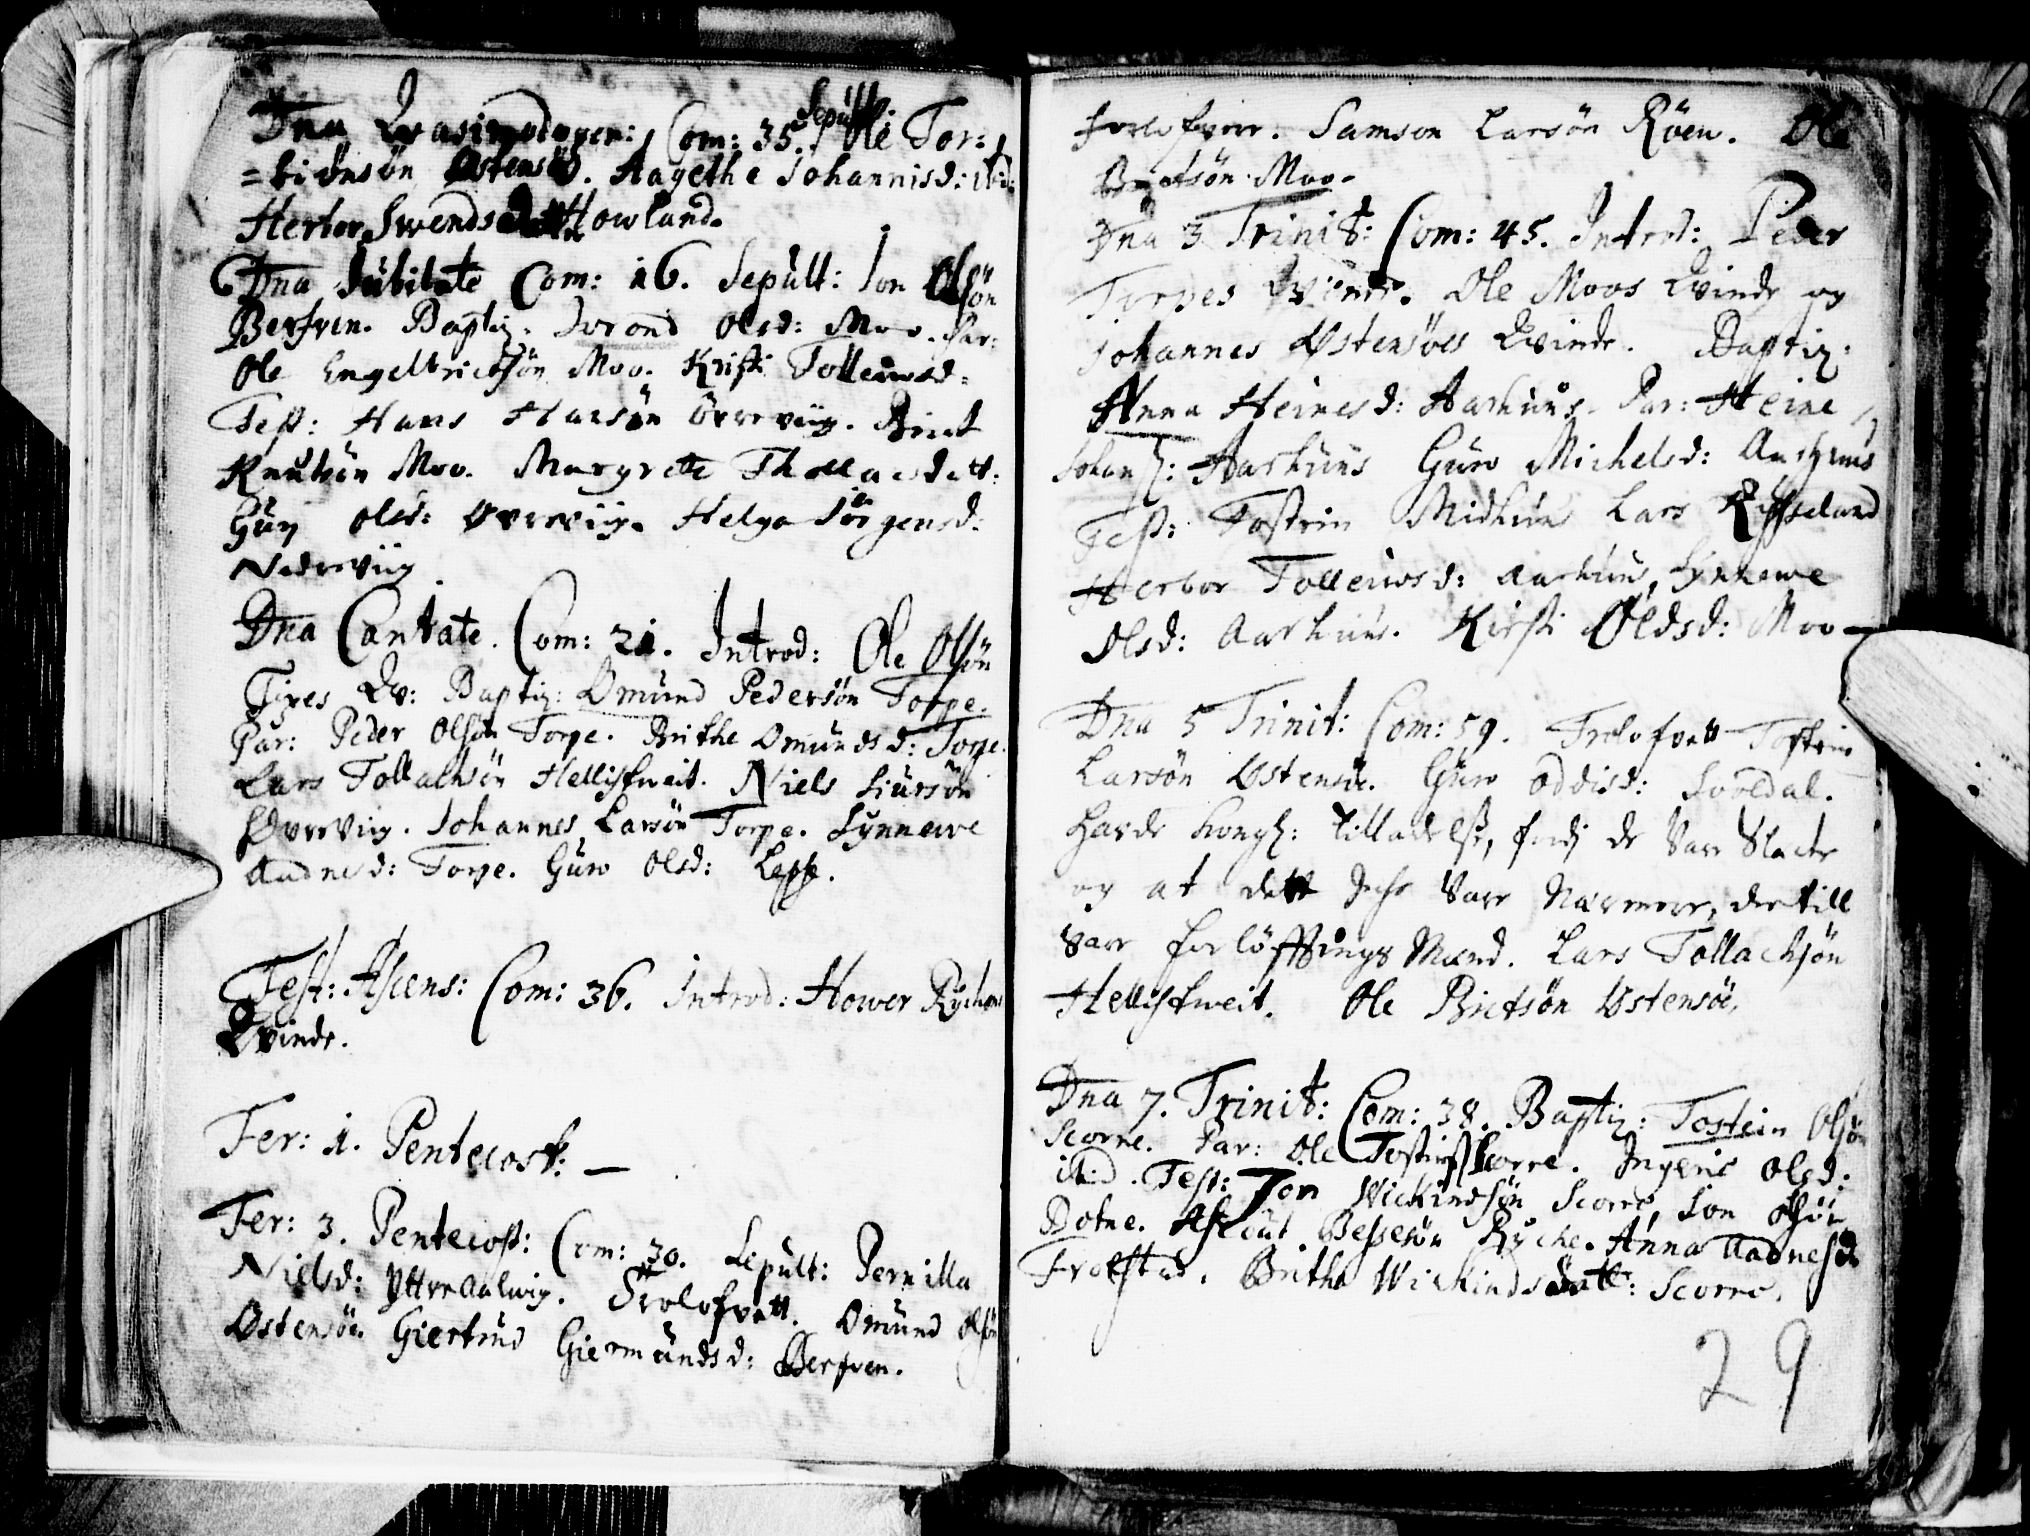 Dna Qvasimodogen: Com: 35. Sepult: Ole Tor:
=kieldsön Østensöe. Aagethe Johannisd: ibid:
Herbor Swends Howland.
Dna Jubilate Com: 16. Sepult: Jon Olsön
Berfven. Baptiz. Jorond Olsd: Moo. Par:
Ole Engelbrictsön Moo. Kristi Tollewsd:
Test: Hans Larsön Övreviig. Brict
Knutsön Moo. Margrete Thollacsdatt:
Gury Olsd: Øvreviig. Helga Jörgensd:
Nedreviig
Dna Cantate. Com: 21. Introd: Ole Olsön
Torpes Qv: Baptiz: Omund Pedersön Torpe.
Par: Peder Olsön Torpe. Brithe Omundsd: Torpe.
Lars Tollachsön Hellisthveit. Niels Siursön
Øvreviig. Johannes Larsön Torpe. Synnewe
Aadnesd: Torpe. Guro Olsd: Leppe.
Fest: Ascens: Com: 36. Introd: Hower Rÿckes
Qvinde.
Fer: 1. Pentecost: —
Fer: 3. Pentecost: Com: 30. Sepult: Pernilla
Nielsd: YttreAalwig. Trolofvett. Omund Olsön
Østensöe. Giertrud Giermundsd: Berfven.
Forlofvere. Samson Larsön Röen. Ole
Brictsön Moo.
Dna 3 Trinit: Com: 45. Introd: Peder
Torpes Qvinde. Ole Moos Qvinde og
Johannes Østensöes Qvinde. Baptiz:
Anna Heinesd: Aarhuus. Par: Heine
Johans: Aarhuus Guro Michelsd: Aarhuus
Test: Tostein Midhuus Lars
Herbor Tollewsd: Aarhuus, Synnewe
Olsd: Aarhuus. Kirsti Oldsd: Moo —
Dna 5 Trinit: Com: 59. Trolofvett Tostein
Larsön Østensöe. Guro Oddisd: Sooldal.
Hafde Kongl: Tilladelse, fordj de Vare Slecte
og at dett Jche Vare Nærmere, der till
Vare forlöffvings Mænd. Lars Tollachsön
Hellisthveit. Ole Brictsön Østensöe.
Dna 7. Trinit: Com: 38. Baptiz: Tostein Olsön
Scorre. Par: Ole Tostins: Scorre. Ingerie Olsd:
ibid. Test: Jon Wickindsön Scorre, Jon Olsön
Botne. Aslout Bessesön Rÿcke. Anna Aadnesd:
Frolstad. Britha Wickindsdatt: Scorre.
29